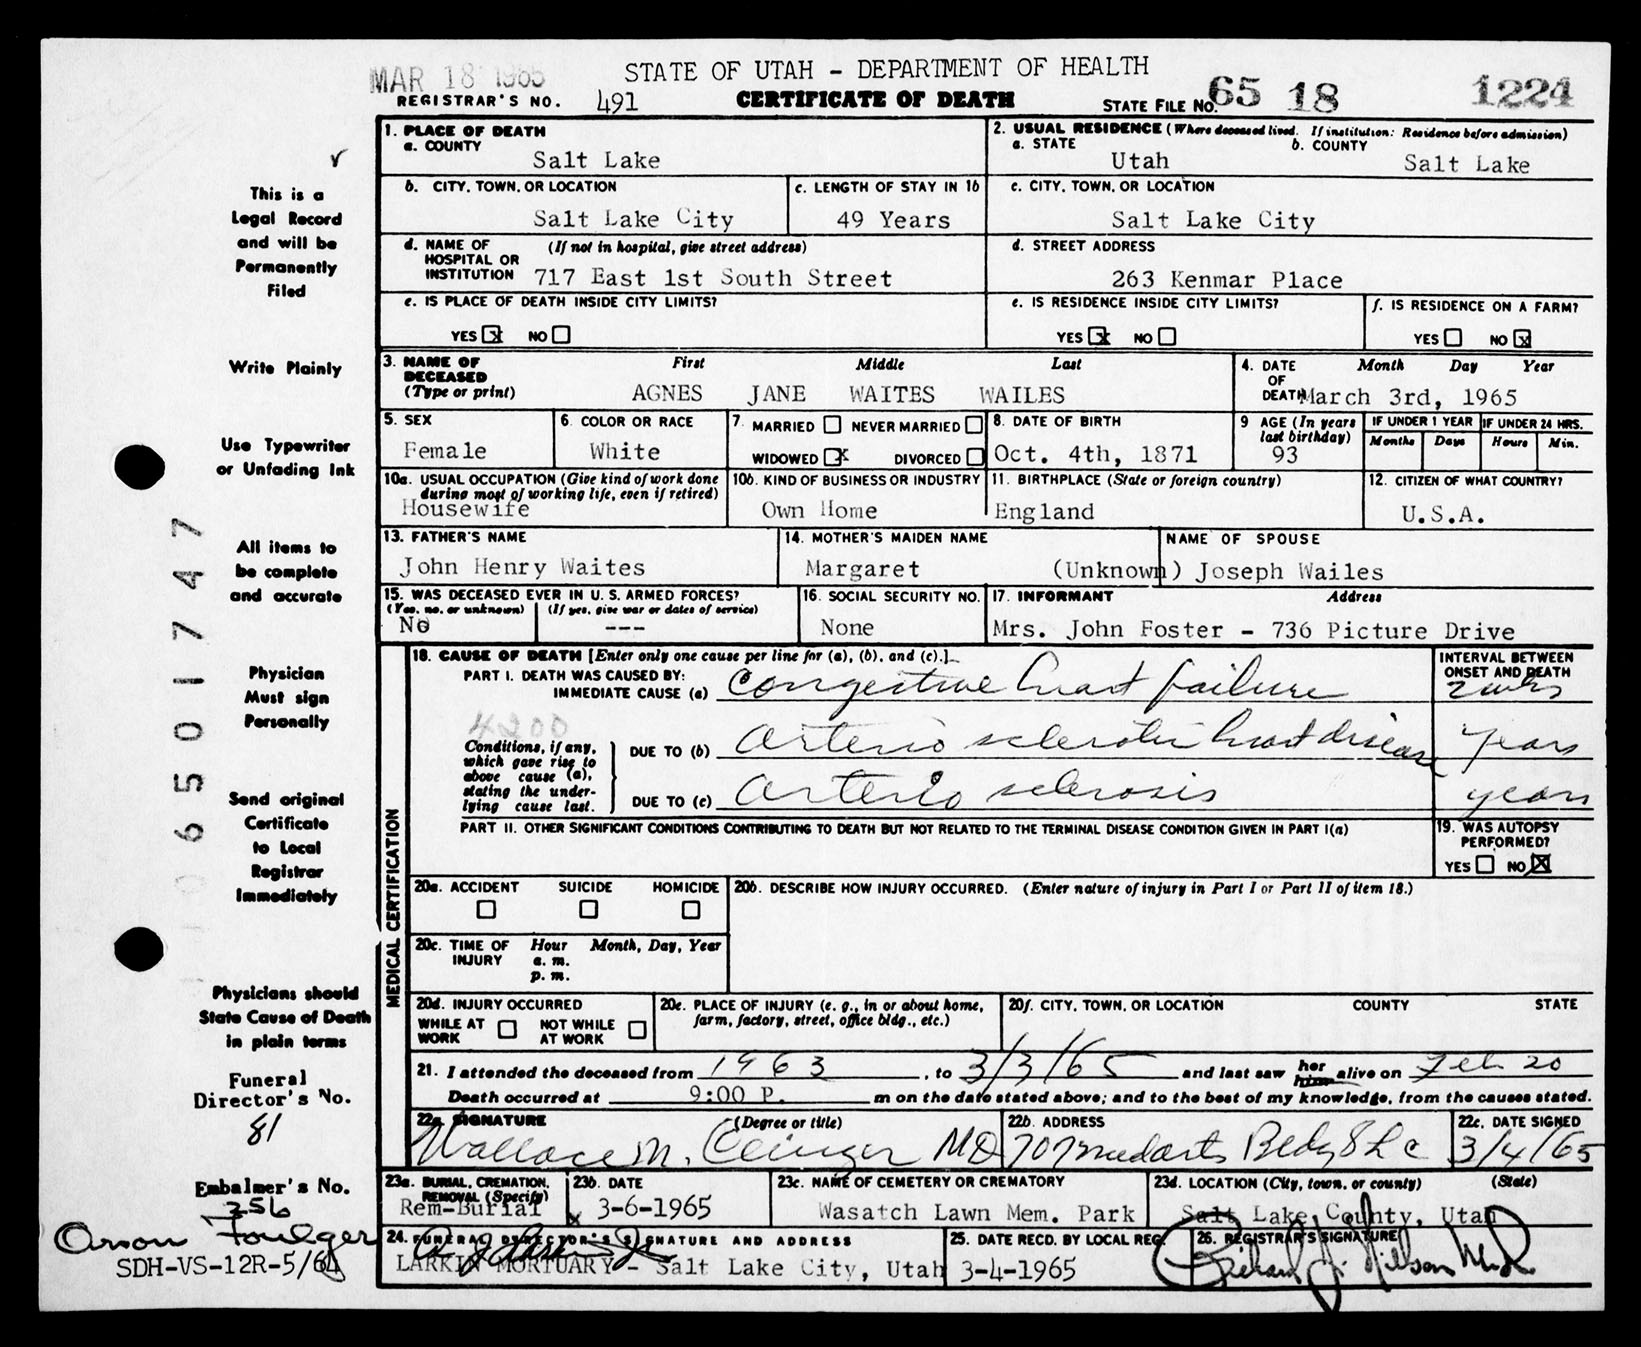 MAR 18 1965
STATE OF UTAH - DEPARTMENT OF HEALTH
REGISTRAR'S NO. 491
CERTIFICATE OF DEATH
STATE FILE NO. 65 18 1224
1. PLACE OF DEATH
a. COUNTY
Salt Lake
2. USUAL RESIDENCE (Where deceased lived. If institution: Residence before admission)
a. STATE
Utah
b. COUNTY
Salt Lake
b. CITY, TOWN, OR LOCATION
Salt Lake City
c. LENGTH OF STAY IN 1b
49 Years
c. CITY, TOWN, OR LOCATION
Salt Lake City
d. NAME OF HOSPITAL OR INSTITUTION (If not in hospital, give street address)
717 East 1st South Street
d. STREET ADDRESS
263 Kenmar Place
e. IS PLACE OF DEATH INSIDE CITY LIMITS?
YES x NO
e. IS RESIDENCE INSIDE CITY LIMITS?
YES x NO
f. IS RESIDENCE ON A FARM?
YES NO x
3. NAME OF DECEASED (Type or print)
First Middle Last
AGNES JANE WAITES WAILES
4. DATE OF DEATH
Month Day Year
March 3rd, 1965
5. SEX
Female
6. COLOR OR RACE
White
7. MARRIED NEVER MARRIED
WIDOWED x DIVORCED
8. DATE OF BIRTH
Oct. 4th, 1871
9 AGE (In years last birthday)
93
IF UNDER 1 YEAR
Months Days
IF UNDER 24 HRS.
Hours Min.
10a. USUAL OCCUPATION (Give kind of work done during most of working life, even if retired)
Housewife
10b. KIND OF BUSINESS OR INDUSTRY
Own Home
11. BIRTHPLACE (State or foreign country)
England
12. CITIZEN OF WHAT COUNTRY?
U.S.A.
13. FATHER'S NAME
John Henry Waites
14. MOTHER'S MAIDEN NAME
Margaret (Unknown)
NAME OF SPOUSE
Joseph Wailes
15. WAS DECEASED EVER IN U. S. ARMED FORCES?
(Yes, no, or unknown) (If yes, give war or dates of service)
No ---
16. SOCIAL SECURITY NO.
None
17. INFORMANT Address
Mrs. John Foster - 736 Picture Drive
MEDICAL CERTIFICATION
18. CAUSE OF DEATH [Enter only one cause per line for (a), (b), and (c).]
PART I. DEATH WAS CAUSED BY:
IMMEDIATE CAUSE (a) Congestive heart failure
INTERVAL BETWEEN ONSET AND DEATH
4200
Conditions, if any, which gave rise to above cause (a), stating the underlying cause last.
DUE TO (b) Arterio sclerotic heart disease years
DUE TO (c) Arterio sclerosis years
PART II. OTHER SIGNIFICANT CONDITIONS CONTRIBUTING TO DEATH BUT NOT RELATED TO THE TERMINAL DISEASE CONDITION GIVEN IN PART I(a)
19. WAS AUTOPSY PERFORMED?
YES NO X
20a. ACCIDENT SUICIDE HOMICIDE
20b. DESCRIBE HOW INJURY OCCURRED. (Enter nature of injury in Part I or Part II of item 18.)
20c. TIME OF INJURY Hour Month, Day, Year
a. m.
p. m.
20d. INJURY OCCURRED
WHILE AT WORK NOT WHILE AT WORK
20e. PLACE OF INJURY (e. g., in or about home, farm, factory, street, office bldg., etc.)
20f. CITY, TOWN, OR LOCATION COUNTY STATE
21. I attended the deceased from 1963, to 3/3/65 and last saw her him alive on Feb 20
Death occurred at 9:00 P. m on the date stated above; and to the best of my knowledge, from the causes stated.
22a. SIGNATURE (Degree or title)
Wallace M. MD
22b. ADDRESS
707 Medarts Bldg S L C
22c. DATE SIGNED
3/4/65
23a. BURIAL, CREMATION, REMOVAL (Specify)
Rem-Burial
23b. DATE
x 3-6-1965
23c. NAME OF CEMETERY OR CREMATORY
Wasatch Lawn Mem. Park
23d. LOCATION (City, town, or county) (State)
Salt Lake County, Utah
24. FUNERAL DIRECTOR'S SIGNATURE AND ADDRESS
LARKIN MORTUARY - Salt Lake City, Utah
25. DATE RECD. BY LOCAL REG.
3-4-1965
26. REGISTRAR'S SIGNATURE
This is a
Legal Record
and will be
Permanently
Filed
Write Plainly
Use Typewriter
or Unfading Ink
All items to
be complete
and accurate
Physician
Must sign
Personally
Send original
Certificate
to Local
Registrar
Immediately
Physicians should
State Cause of Death
in plain terms
Funeral
Director's No.
81
Embalmer's No.
256
Orson Foulger
SDH-VS-12R-5/64
6501747